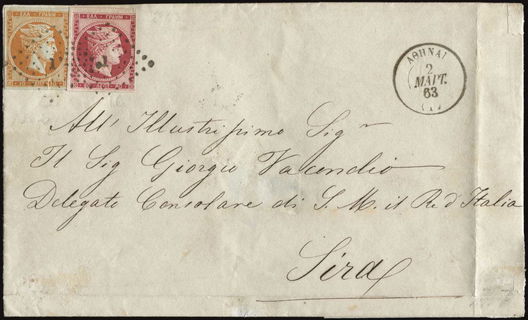 ΕΛΛ. ΓΡΑΜΜ. ΕΛΛ. ΓΡΑΜΜ.
ΑΘΗΝΑΙ
2
ΜΑΙΤ.
63
(1)
All' Illustrissimo Sigr
Il Sig Giorgio Vacondio
Delegato Consolare di S. M. il Re d'Italia
Sira